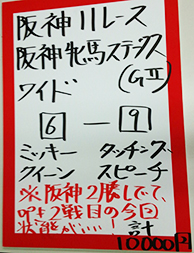 阪神11レース
阪神牝馬ステークス
(GⅡ)
ワイド
6 — 9
ミッキー タッチング
クイーン スピーチ
※阪神2勝してて、
叩き2戦目の今回
状態がいい! 計
10000円